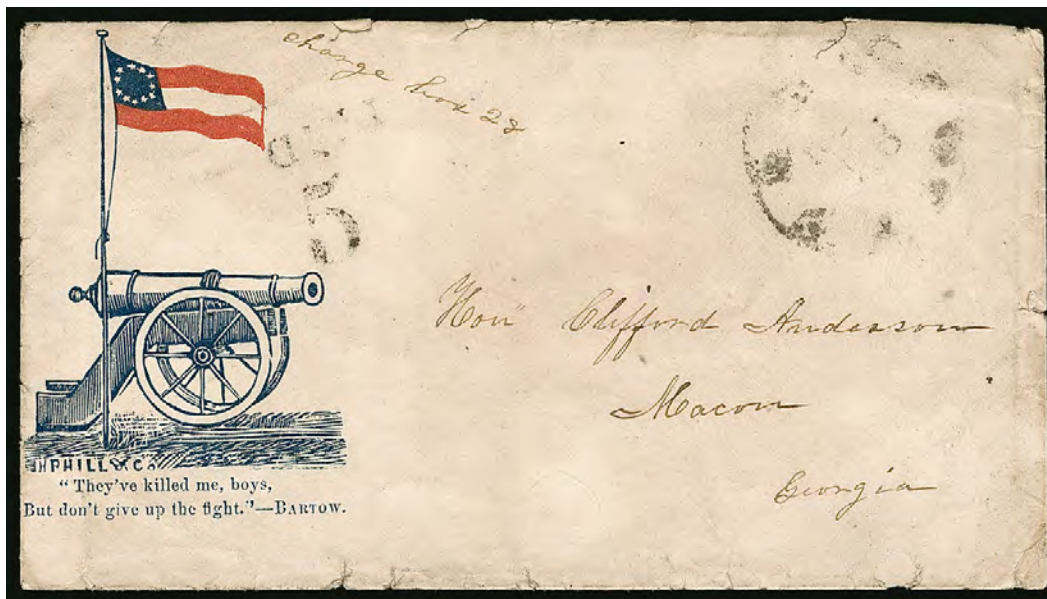 charge box 28
5
Hon Clifford Anderson
Macon
Georgia
PHILL & Co
"They've killed me, boys,
But don't give up the fight."—BARTOW.